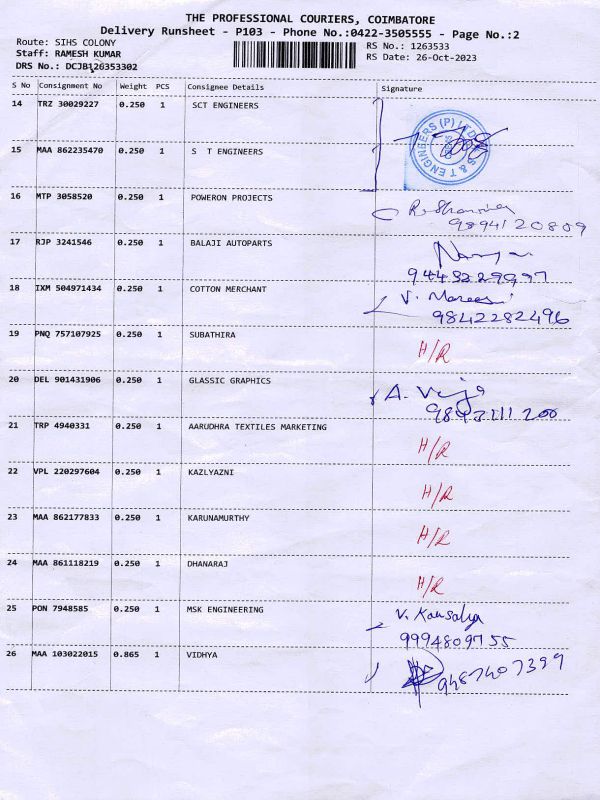 THE PROFESSIONAL COURIERS, COIMBATORE
Delivery Runsheet - P103 - Phone No.:0422-3505555 - Page No.:2
Route: SIHS COLONY RS No.: 1263533
Staff: RAMESH KUMAR RS Date: 26-Oct-2023
DRS No.: DCJB126353302
S No Consignment No Weight PCS Consignee Details Signature
14 TRZ 30029227 0.250 1 SCT ENGINEERS
S & T ENGINEERS (P) LTD
15 MAA 862235470 0.250 1 S T ENGINEERS
16 MTP 3058520 0.250 1 POWERON PROJECTS
9894120809
17 RJP 3241546 0.250 1 BALAJI AUTOPARTS
18 IXM 504971434 0.250 1 COTTON MERCHANT V.
9842282496
19 PNQ 757107925 0.250 1 SUBATHIRA H/R
20 DEL 901431906 0.250 1 GLASSIC GRAPHICS A.
21 TRP 4940331 0.250 1 AARUDHRA TEXTILES MARKETING H/R
22 VPL 220297604 0.250 1 KAZLYAZNI H/R
23 MAA 862177833 0.250 1 KARUNAMURTHY H/R
24 MAA 861118219 0.250 1 DHANARAJ H/R
25 PON 7948585 0.250 1 MSK ENGINEERING V. Kausalya
9994809755
26 MAA 103022015 0.865 1 VIDHYA 9487407399